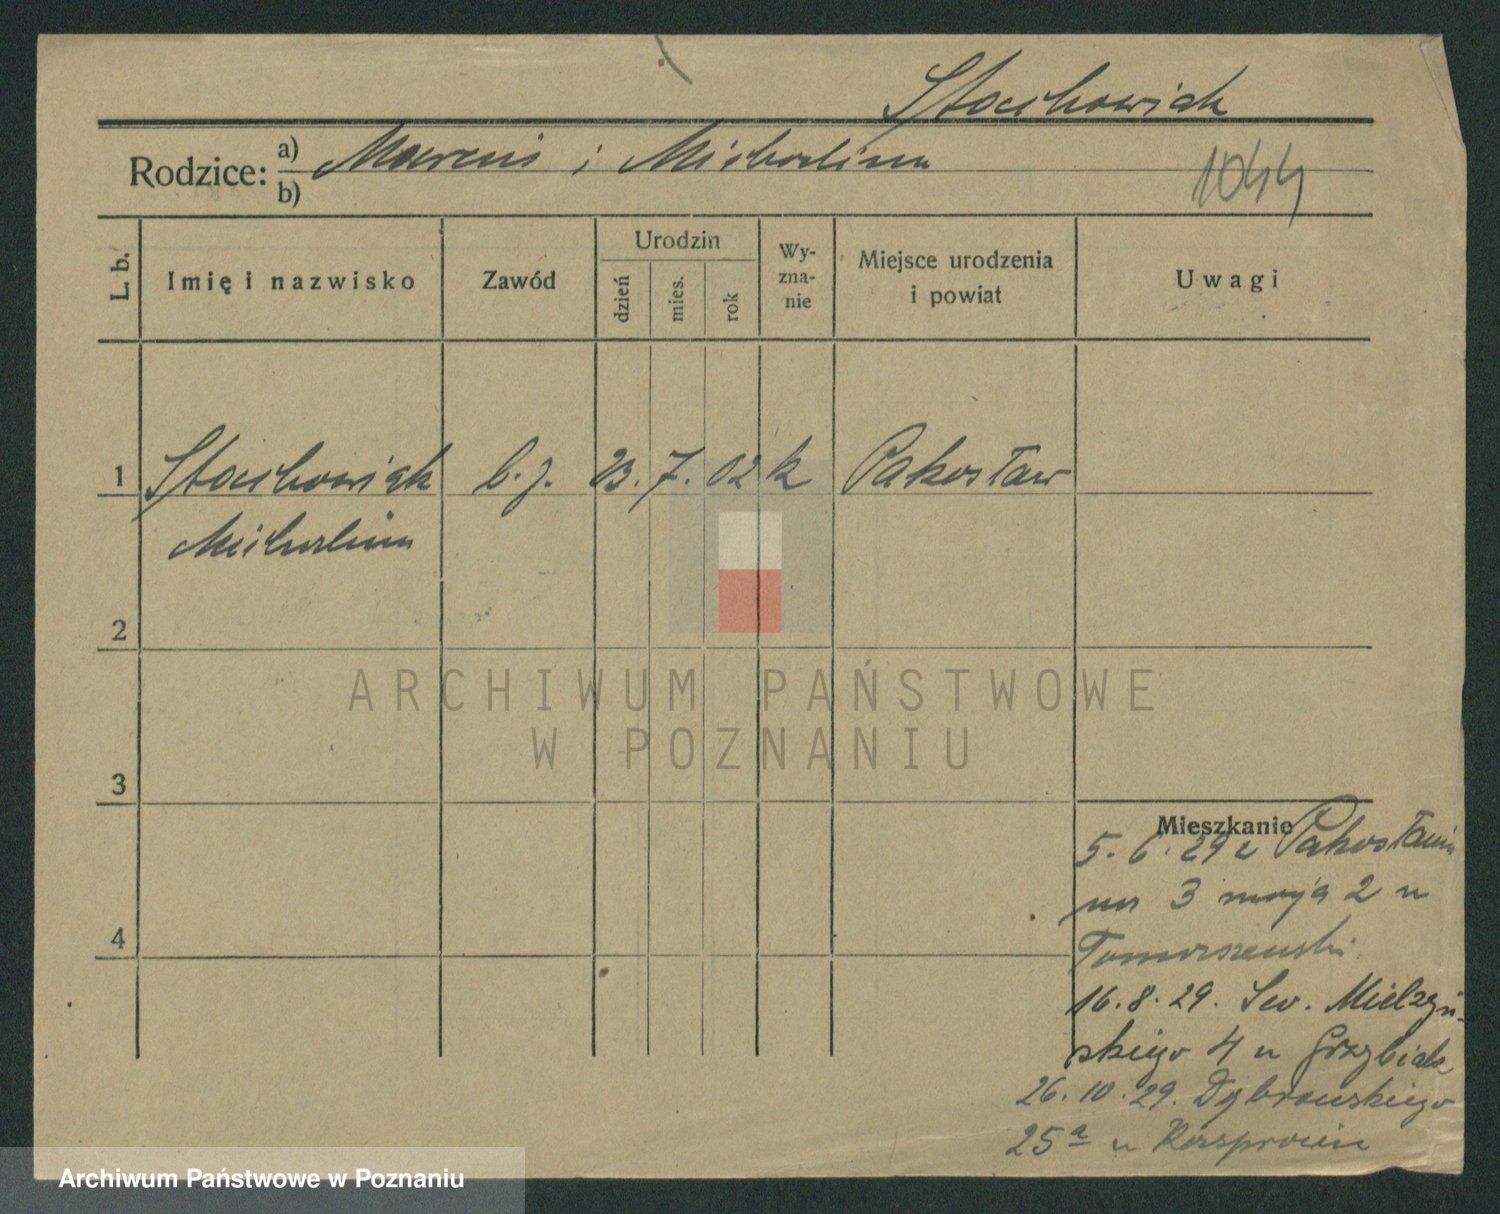 Stachowiak
Rodzice: a) Marcin i Michalina
b)
1044
L. b.
Imię i nazwisko
Zawód
Urodzin
dzień
mies.
rok
Wy-
zna-
nie
Miejsce urodzenia
i powiat
Uwagi
1 Stachowiak b. z. 23. 7. 02 k Pakosław
Michalina
2
3
4
ARCHIWUM PAŃSTWOWE
W POZNANIU
Mieszkanie
5. 6. 29 z Pakosławia
na 3 maja 2 u
Tomaszewski
16. 8. 29. Sew. Mielżyń-
skiego 4 u Grzybiak
26. 10. 29. Dąbrowskiego
25a u
Archiwum Państwowe w Poznaniu